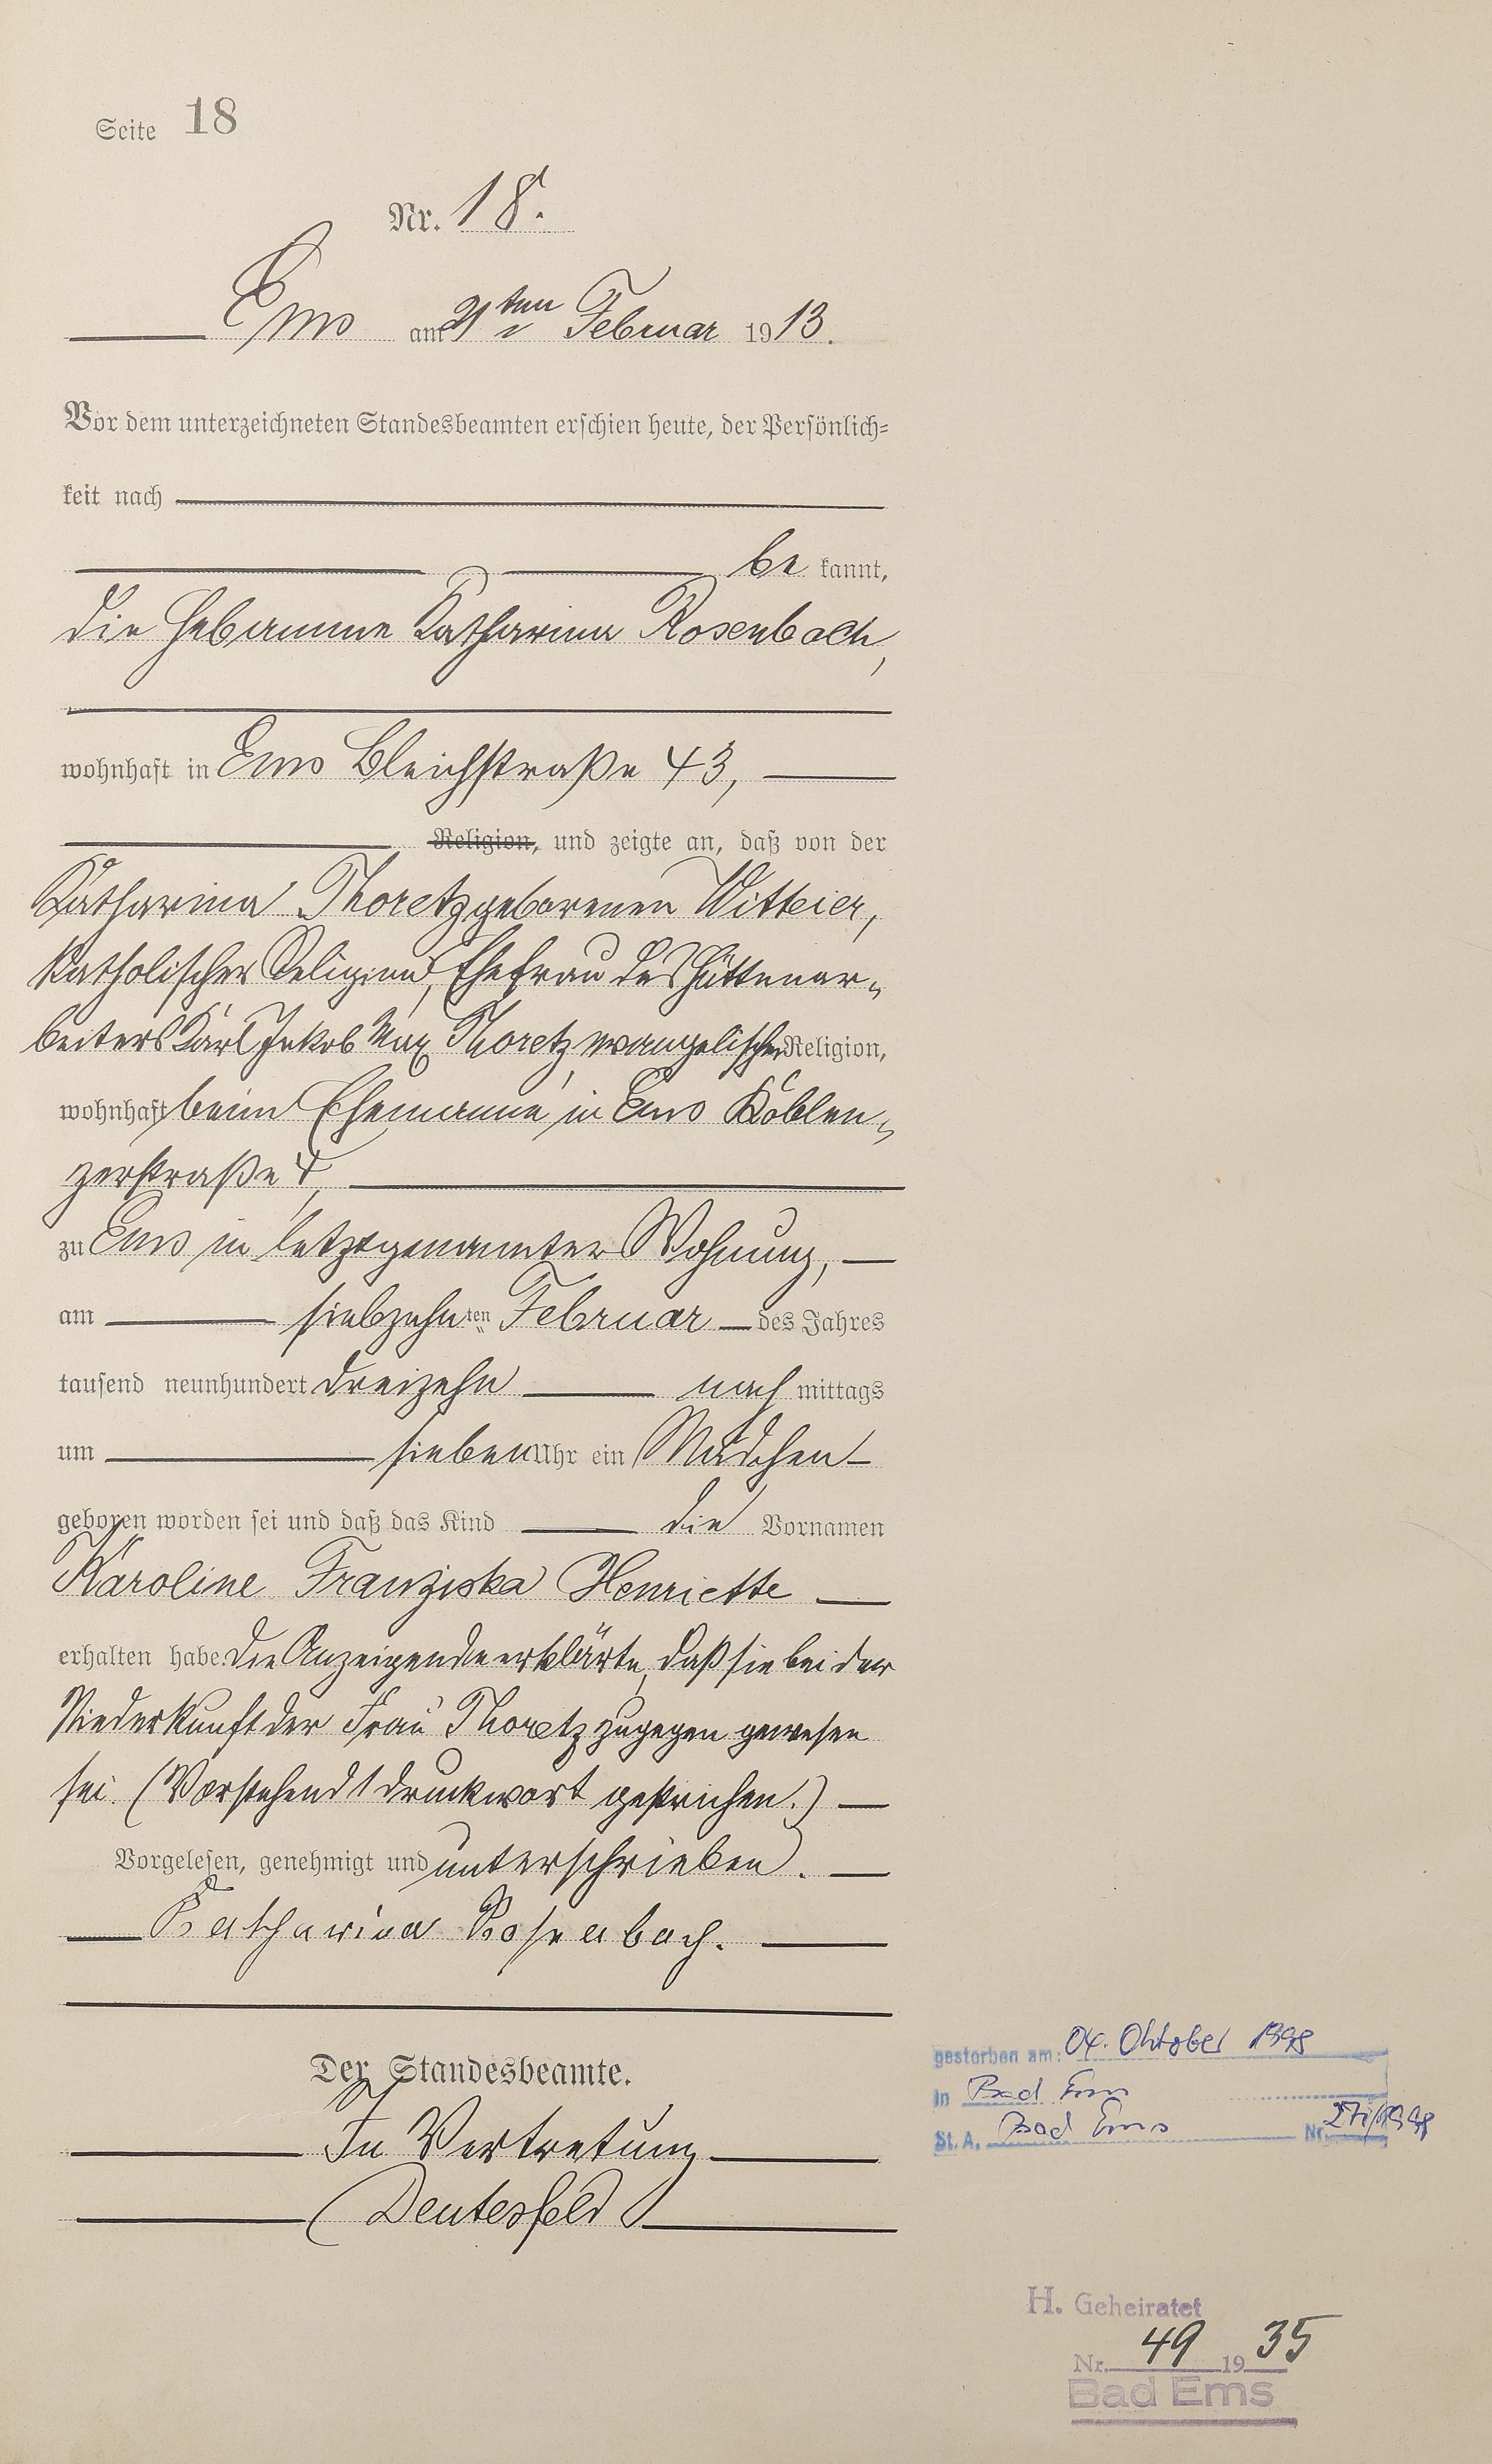 Seite 18
Nr. 18.
Ems am 21ten Februar 1913.
Vor dem unterzeichneten Standesbeamten erschien heute, der Persönlich-
keit nach
be kannt,
die Hebamme Katharina Rosenbach,
wohnhaft in Ems Bleichstraße 43,
Religion, und zeigte an, daß von der
Katharina Thoretz geborenen Witteier,
katholischer Religion, Ehefrau des Hüttenar-
beiters Karl Jakob Max Thoretz, evangelischer Religion,
wohnhaft beim Ehemanne in Ems Koblen-
zerstraße
zu Ems in letztgenannter Wohnung,
am siebzehnten Februar des Jahres
tausend neunhundert dreizehn nach mittags
um sieben Uhr ein Mädchen
geboren worden sei und daß das Kind die Vornamen
Karoline Franziska Henriette
erhalten habe. Die Anzeigende erklärte, daß sie bei der
Niederkunft der Frau Thoretz zugegen gewesen
sei. (Vorstehend 1 Druckwort gestrichen.)
Vorgelesen, genehmigt und unterschrieben.
Katharina Rosenbach.
Der Standesbeamte.
In Vertretung
Deutesfeld
gestorben am: 04. Oktober 1998
in Bad Ems
St. A. Bad Ems Nr.
H. Geheiratet
Nr. 49 1935
Bad Ems